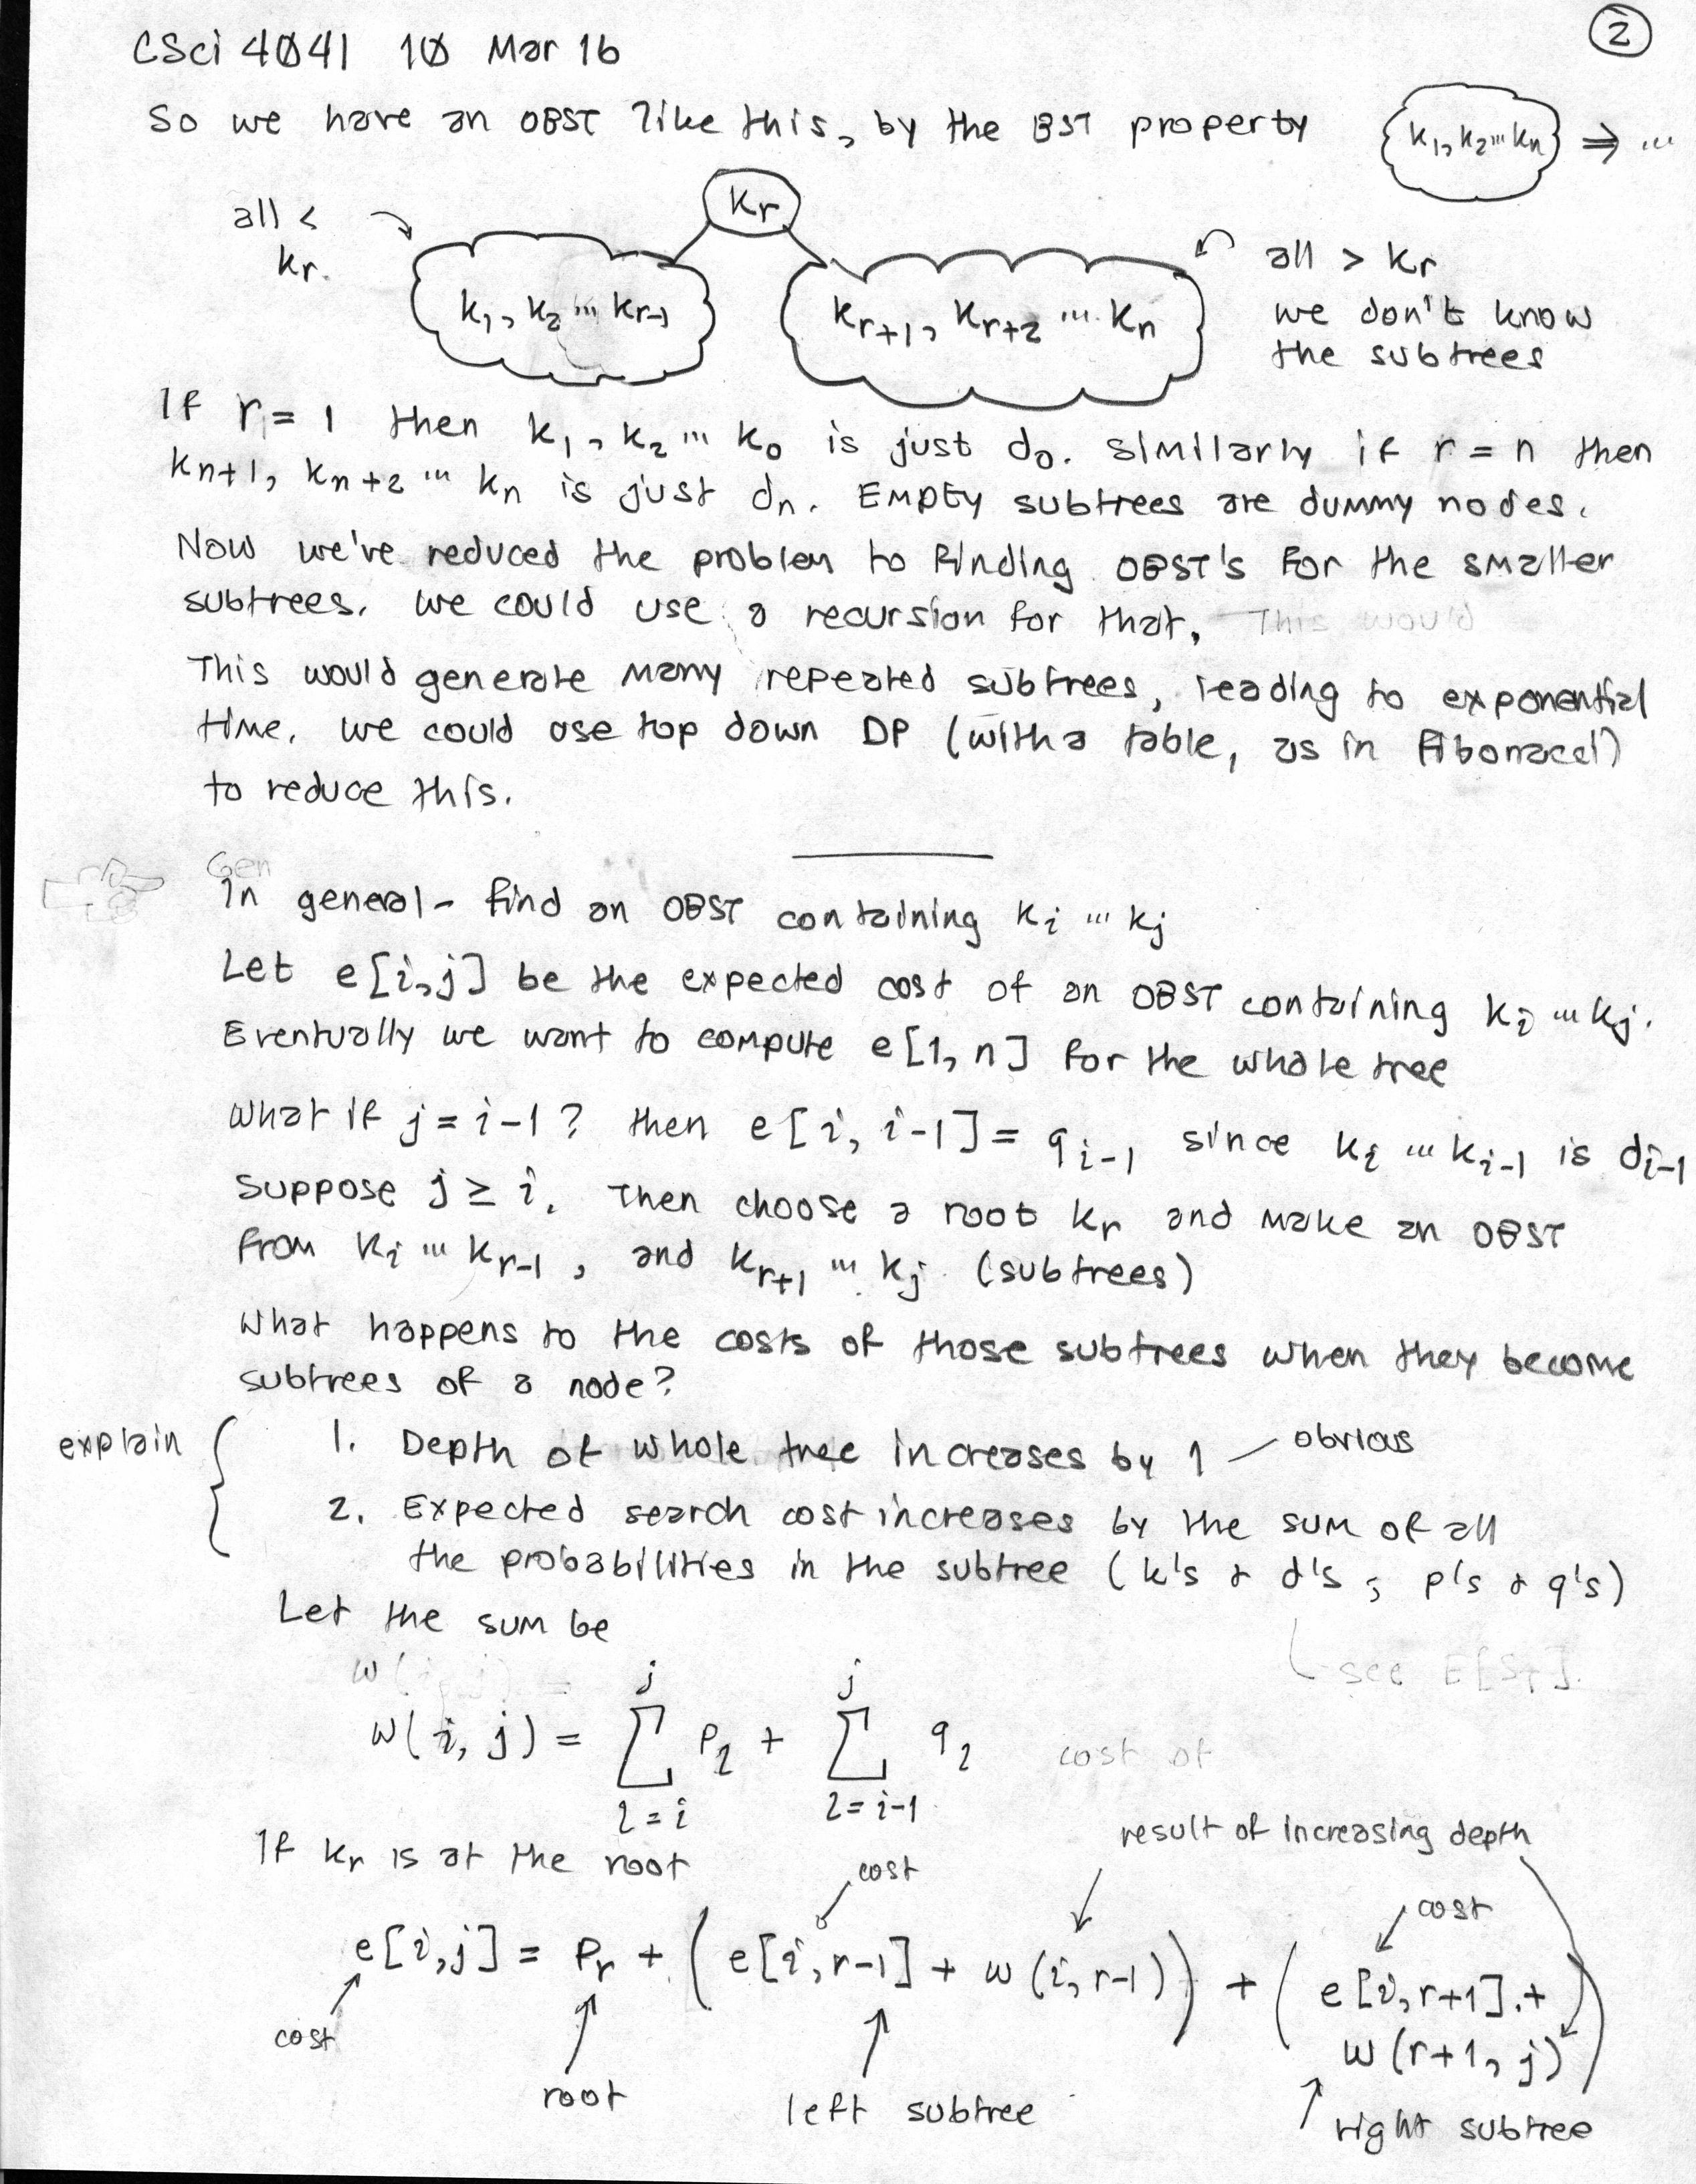 ②
CSci 4041 10 Mar 16
So we have an OBST like this, by the BST property
k₁, k₂ ··· kₙ ⇒ ···
kᵣ
all < kᵣ
k₁, k₂ ··· kᵣ₋₁
kᵣ₊₁, kᵣ₊₂ ··· kₙ
all > kᵣ
we don't know
the subtrees
If r = 1 then k₁, k₂ ··· k₀ is just d₀. Similarly if r = n then
kₙ₊₁, kₙ₊₂ ··· kₙ is just dₙ. Empty subtrees are dummy nodes.
Now we've reduced the problem to finding OBST's for the smaller
subtrees. We could use a recursion for that. This would
This would generate many repeated subtrees, leading to exponential
time. We could use top down DP (with a table, as in Fibonacci)
to reduce this.
Gen
In general - find an OBST containing kᵢ ··· kⱼ
Let e[i,j] be the expected cost of an OBST containing kᵢ ··· kⱼ.
Eventually we want to compute e[1, n] for the whole tree
What if j = i-1? Then e[i, i-1] = qᵢ₋₁ since kᵢ ··· kᵢ₋₁ is dᵢ₋₁
Suppose j ≥ i. Then choose a root kᵣ and make an OBST
from kᵢ ··· kᵣ₋₁, and kᵣ₊₁ ··· kⱼ (subtrees)
What happens to the costs of those subtrees when they become
subtrees of a node?
explain
1. Depth of whole tree increases by 1 — obvious
2. Expected search cost increases by the sum of all
the probabilities in the subtree (k's & d's ; p's & q's)
see E[Sₜ].
Let the sum be
w(i, j) =
w(i, j) = Σ_{l=i}^{j} p_l + Σ_{l=i-1}^{j} q_l
cost of
If kᵣ is at the root
cost
result of increasing depth
cost
e[i,j] = pᵣ + (e[i, r-1] + w(i, r-1)) + (e[i, r+1] +
w(r+1, j))
cost
root
left subtree
right subtree